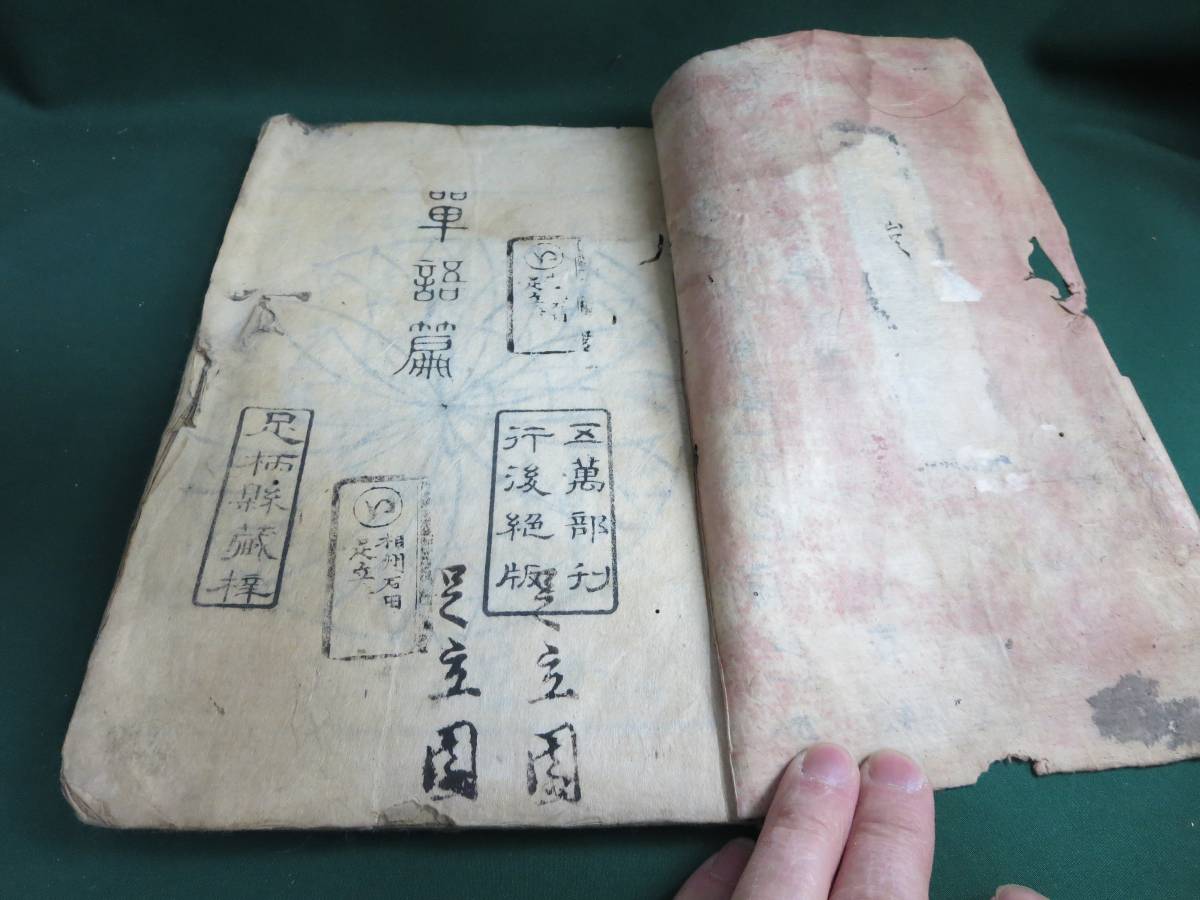 五萬部刊
行後絕版
足立
單語篇
足立園
足立園
相州石田
足立
足柄縣藏梓